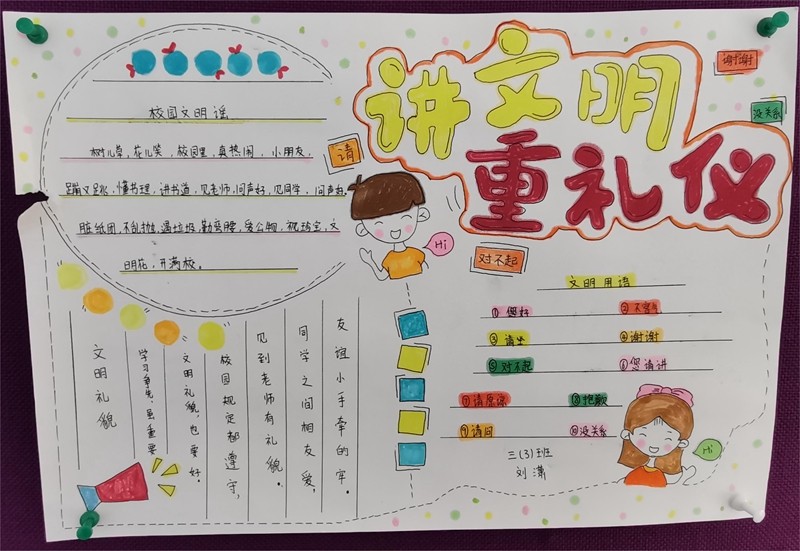 讲文明
重礼仪
谢谢
没关系
请
对不起
Hi
Hi
校园文明谣
树儿学,花儿笑,校园里,真热闹,小朋友,
蹦又跳,懂书理,讲书道,见老师,问声好,见同学,问声好,
脏纸团,不乱抛,遇垃圾,勤弯腰,爱公物,视珍宝,文
明花,开满校。
文明礼貌
学习争先,虽重要
文明礼貌,也要好。
校园规定都遵守,
见到老师有礼貌。
同学之间相友爱,
友谊小手牵的牢。
文明用语
①您好
②不客气
③请坐
④谢谢
⑤对不起
⑥您请讲
⑦请原谅
⑧抱歉
⑨请问
⑩没关系
三(3)班
刘潇